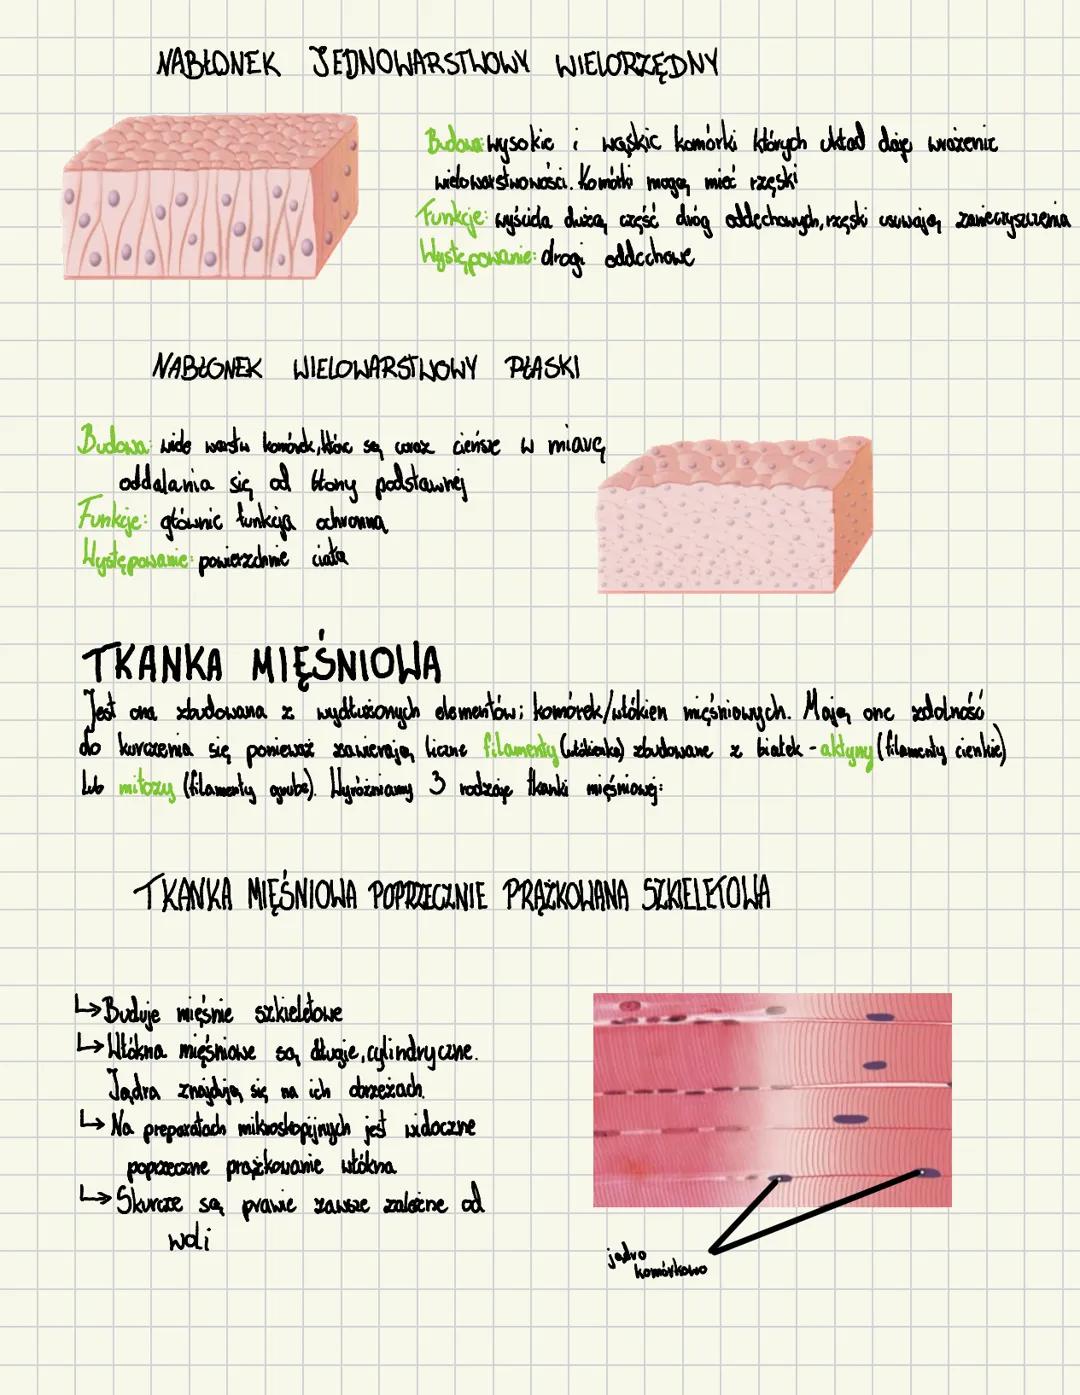 NABŁONEK JEDNOWARSTWOWY WIELORZĘDNY
Budowa: wysokie i wąskie komórki których układ daje wrażenie
wielowarstwowości. Komórki mogą mieć rzęski
Funkcje: wyścieła dużą część dróg oddechowych, rzęski usuwają zanieczyszczenia
Występowanie: drogi oddechowe
NABŁONEK WIELOWARSTWOWY PŁASKI
Budowa: wiele warstw komórek, które są coraz cieńsze w miarę
oddalania się od błony podstawnej
Funkcje: głównie funkcja ochronna
Występowanie: powierzchnie ciała
TKANKA MIĘŚNIOWA
Jest ona zbudowana z wydłużonych elementów; komórek/włókien mięśniowych. Mają one zdolność
do kurczenia się ponieważ zawierają liczne filamenty (włókienka) zbudowane z białek - aktyny (filamenty cienkie)
lub miozy (filamenty grube). Wyróżniamy 3 rodzaje tkanki mięśniowej:
TKANKA MIĘŚNIOWA POPRZECZNIE PRĄŻKOWANA SZKIELETOWA
↳ Buduje mięśnie szkieletowe
↳ Włókna mięśniowe są długie, cylindryczne.
Jądra znajdują się na ich obrzeżach.
↳ Na preparatach mikroskopijnych jest widoczne
poprzeczne prążkowanie włókna
↳ Skurcze są prawie zawsze zależne od
woli
jądro
komórkowo